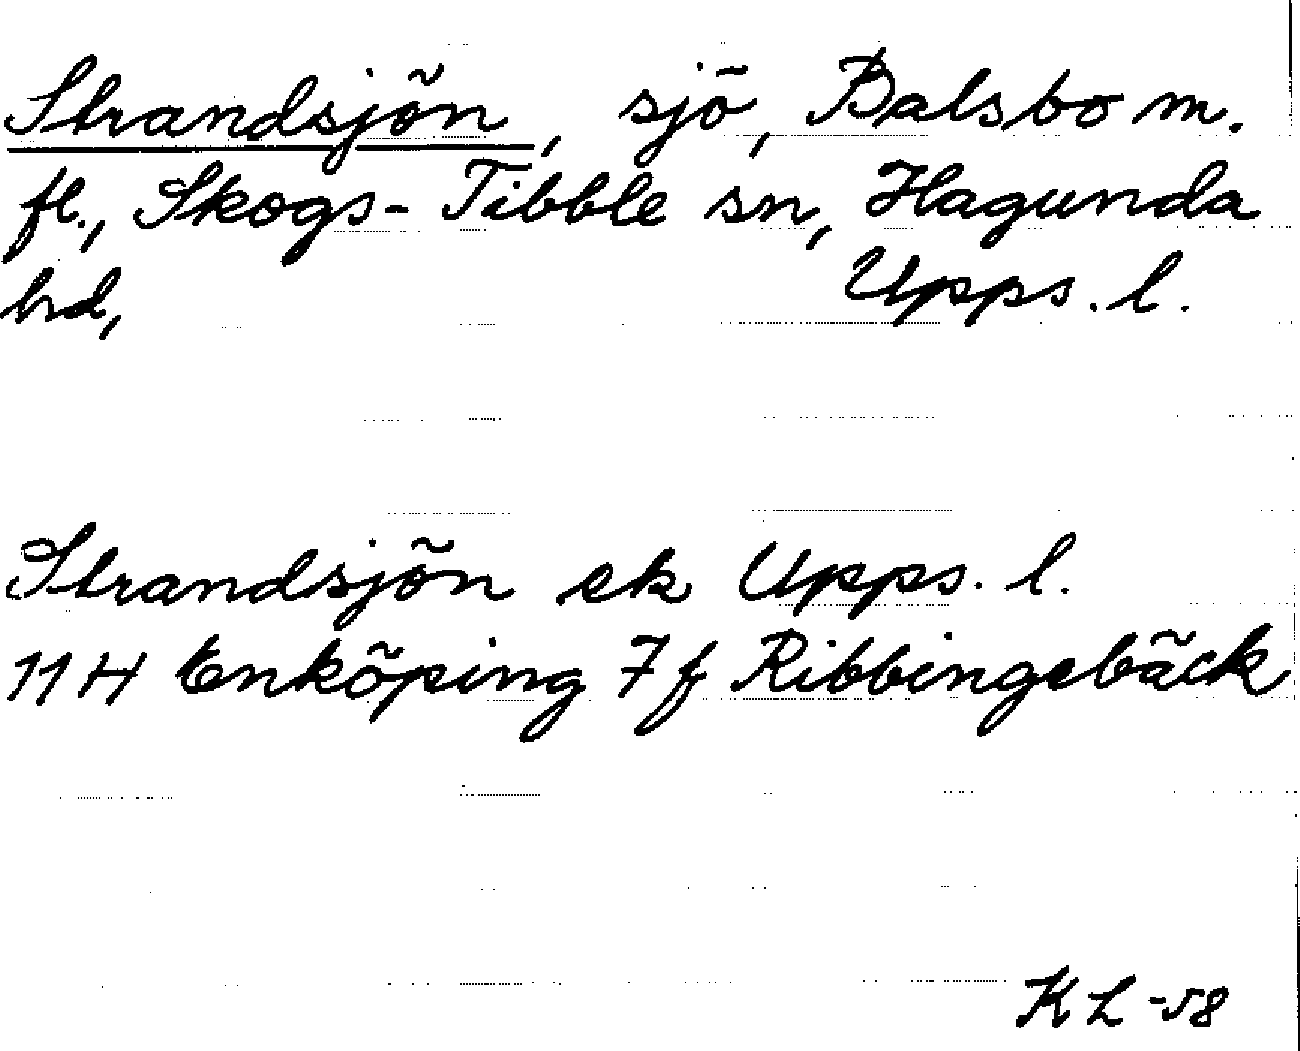 Strandsjön, sjö, Balsbo m.
fl., Skogs-Tibble sn, Hagunda
hd, Upps. l.
Strandsjön ek Upps. l.
11 H Enköping 7 f Ribbingebäck
KL -58